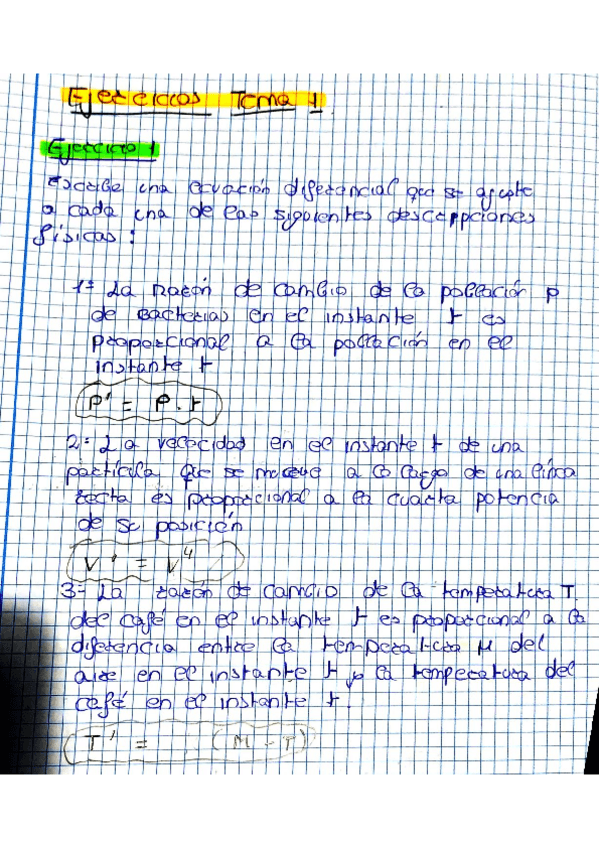 Ejercicios Tema 1
Ejercicio 1
Escribe una ecuación diferencial que se ajuste
a cada una de las siguientes descripciones
físicas:
1= La razón de cambio de la población p
de bacterias en el instante t es
proporcional a la población en el
instante t
P' = P.t
2= La velocidad en el instante t de una
partícula que se mueve a lo largo de una línea
recta es proporcional a la cuarta potencia
de su posición
V' = V⁴
3- La razón de cambio de la temperatura T.
del café en el instante t es proporcional a la
diferencia entre la temperatura M del
aire en el instante t y la temperatura del
café en el instante t.
T' = (M - T)